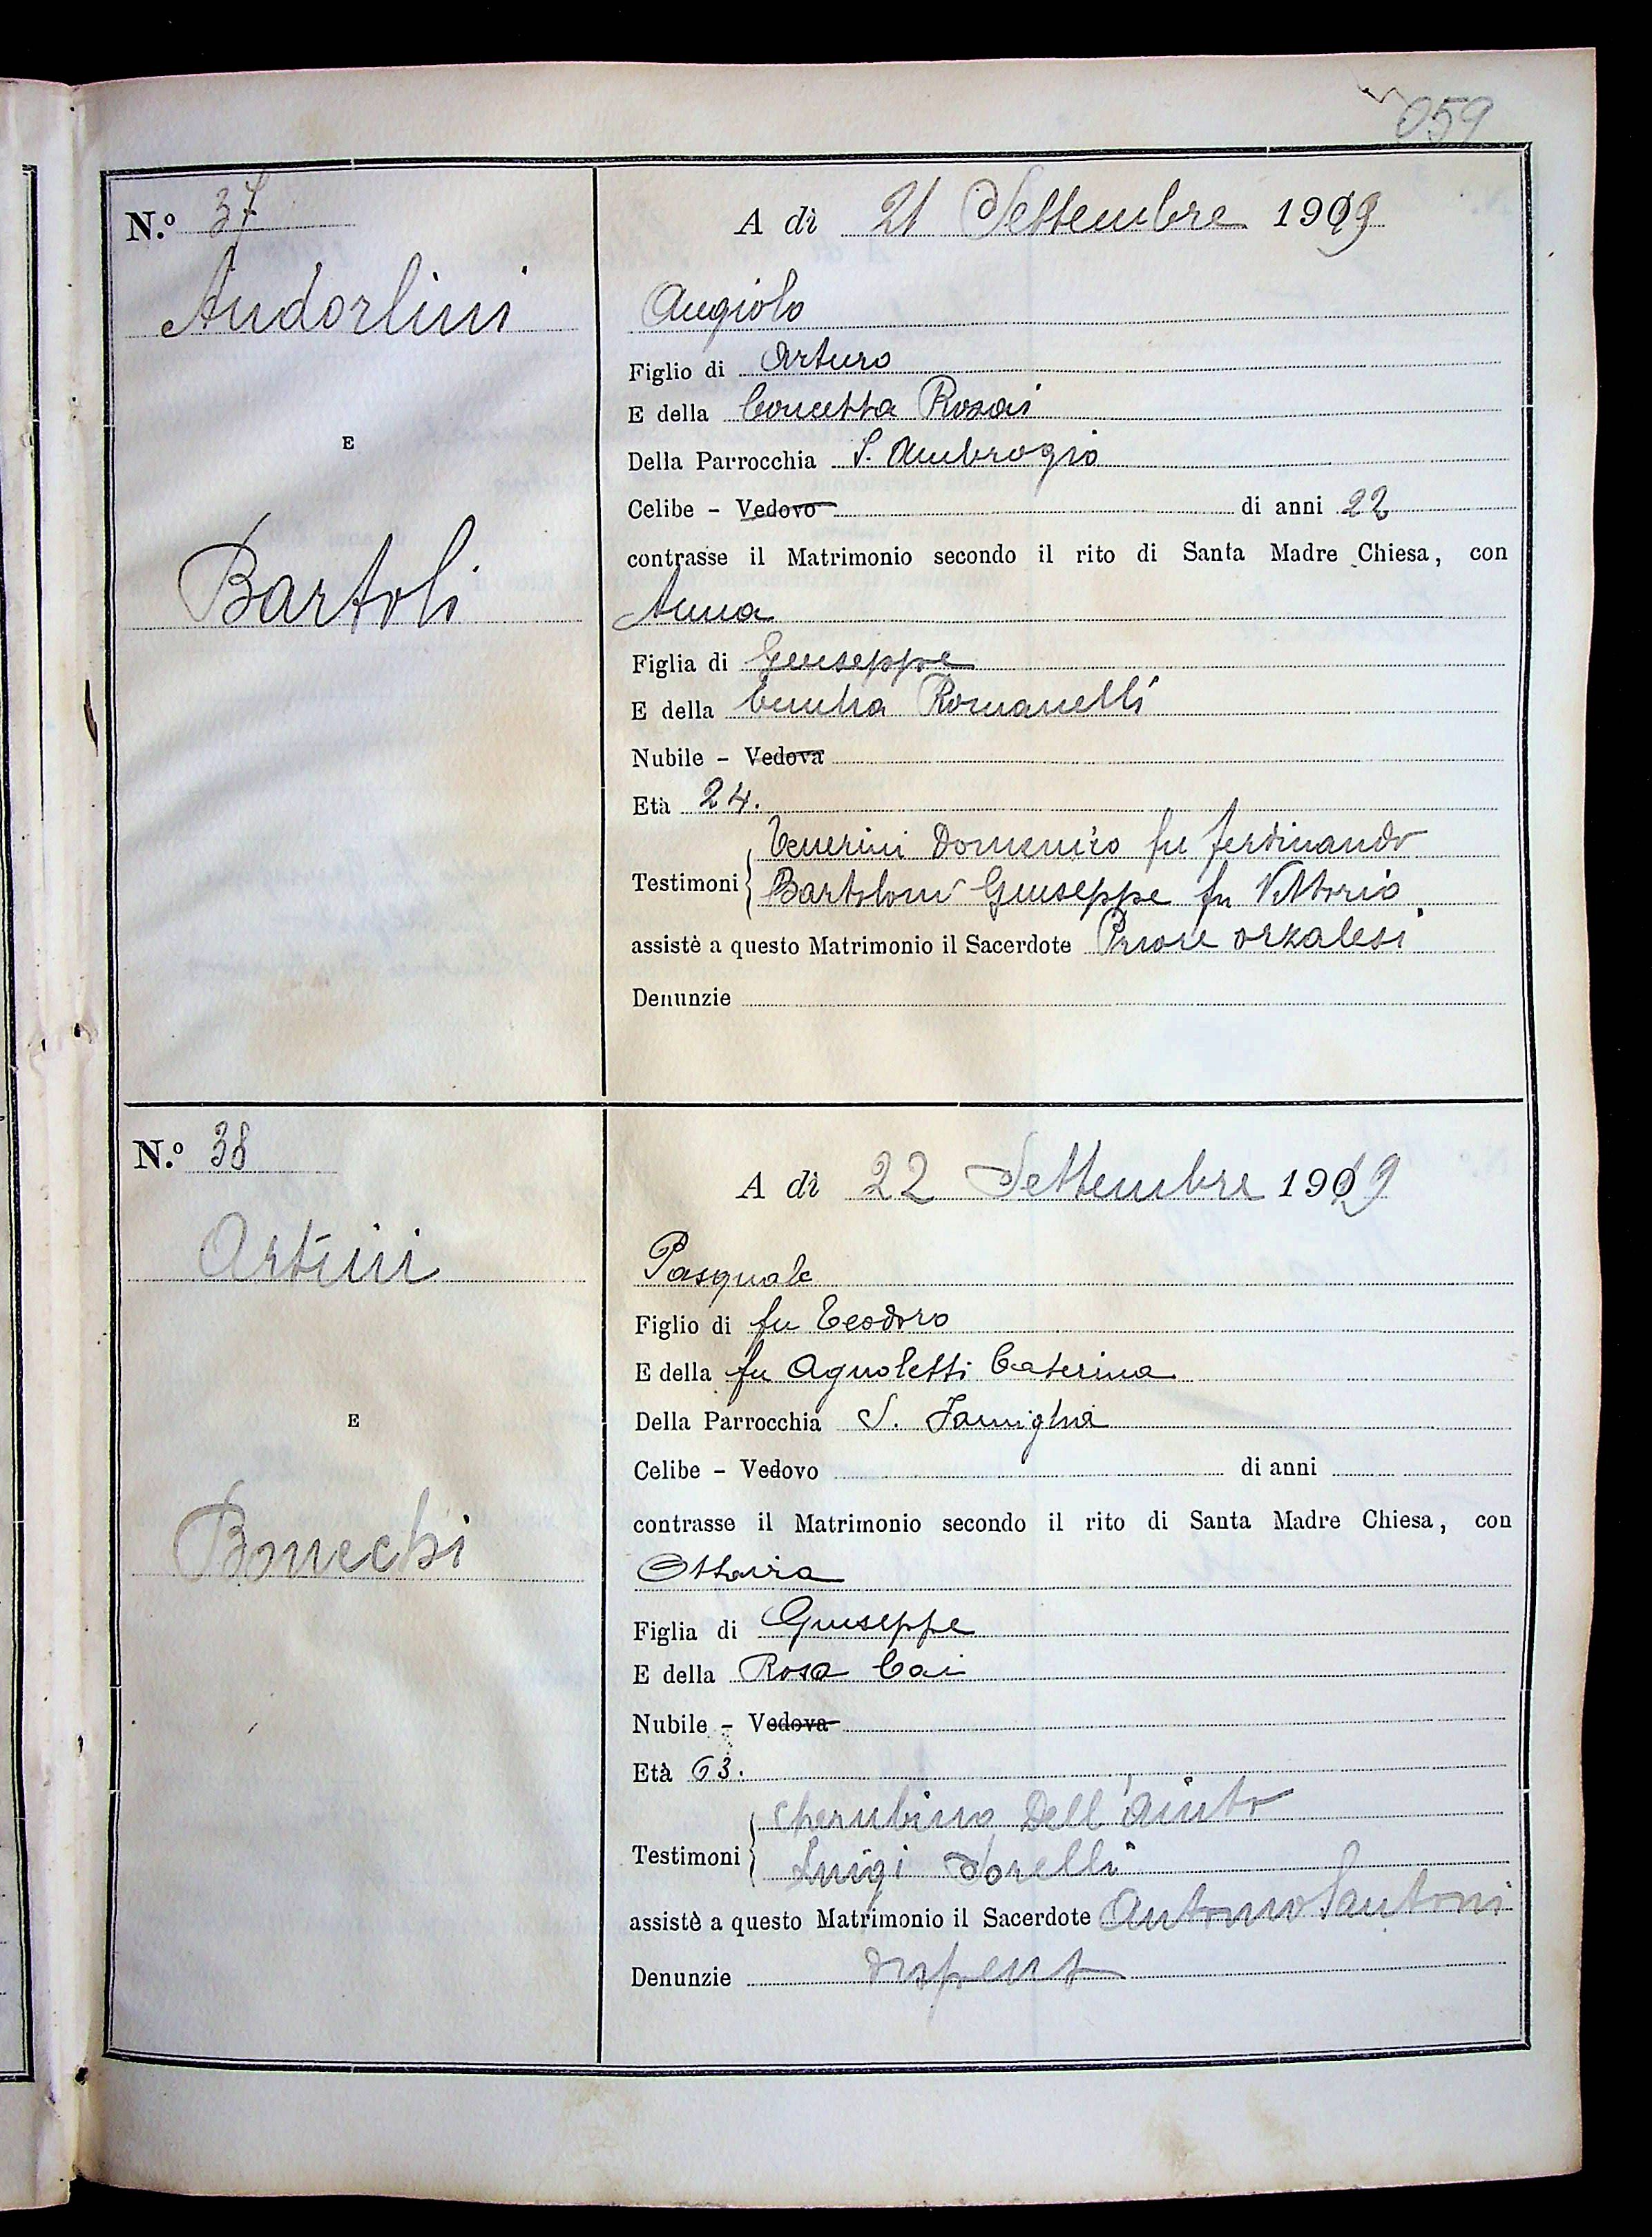 059
N.º 37
A dì 21 Settembre 1919
Andorlini
Angiolo
Figlio di Arturo
E della Concetta Rosai
E
Della Parrocchia S. Ambrogio
Celibe - Vedovo di anni 22
contrasse il Matrimonio secondo il rito di Santa Madre Chiesa, con
Bartoli
Anna
Figlia di Giuseppe
E della Romanelli
Nubile - Vedova
Età 24.
Testimoni
Tenerini Domenico fu Ferdinando
Bartoloni Giuseppe fu Vittorio
assistè a questo Matrimonio il Sacerdote Priore Orzalesi
Denunzie
N.º 38
A dì 22 Settembre 1919
Artini
Pasquale
Figlio di fu Teodoro
E della fu Agnoletti Caterina
E
Della Parrocchia S. Famiglia
Celibe - Vedovo di anni
contrasse il Matrimonio secondo il rito di Santa Madre Chiesa, con
Bonechi
Ottavia
Figlia di Giuseppe
E della Rosa Cai
Nubile - Vedova
Età 63.
Testimoni
Cherubino Dell'aiuto
Luigi
assistè a questo Matrimonio il Sacerdote Antonio Santoni
Denunzie